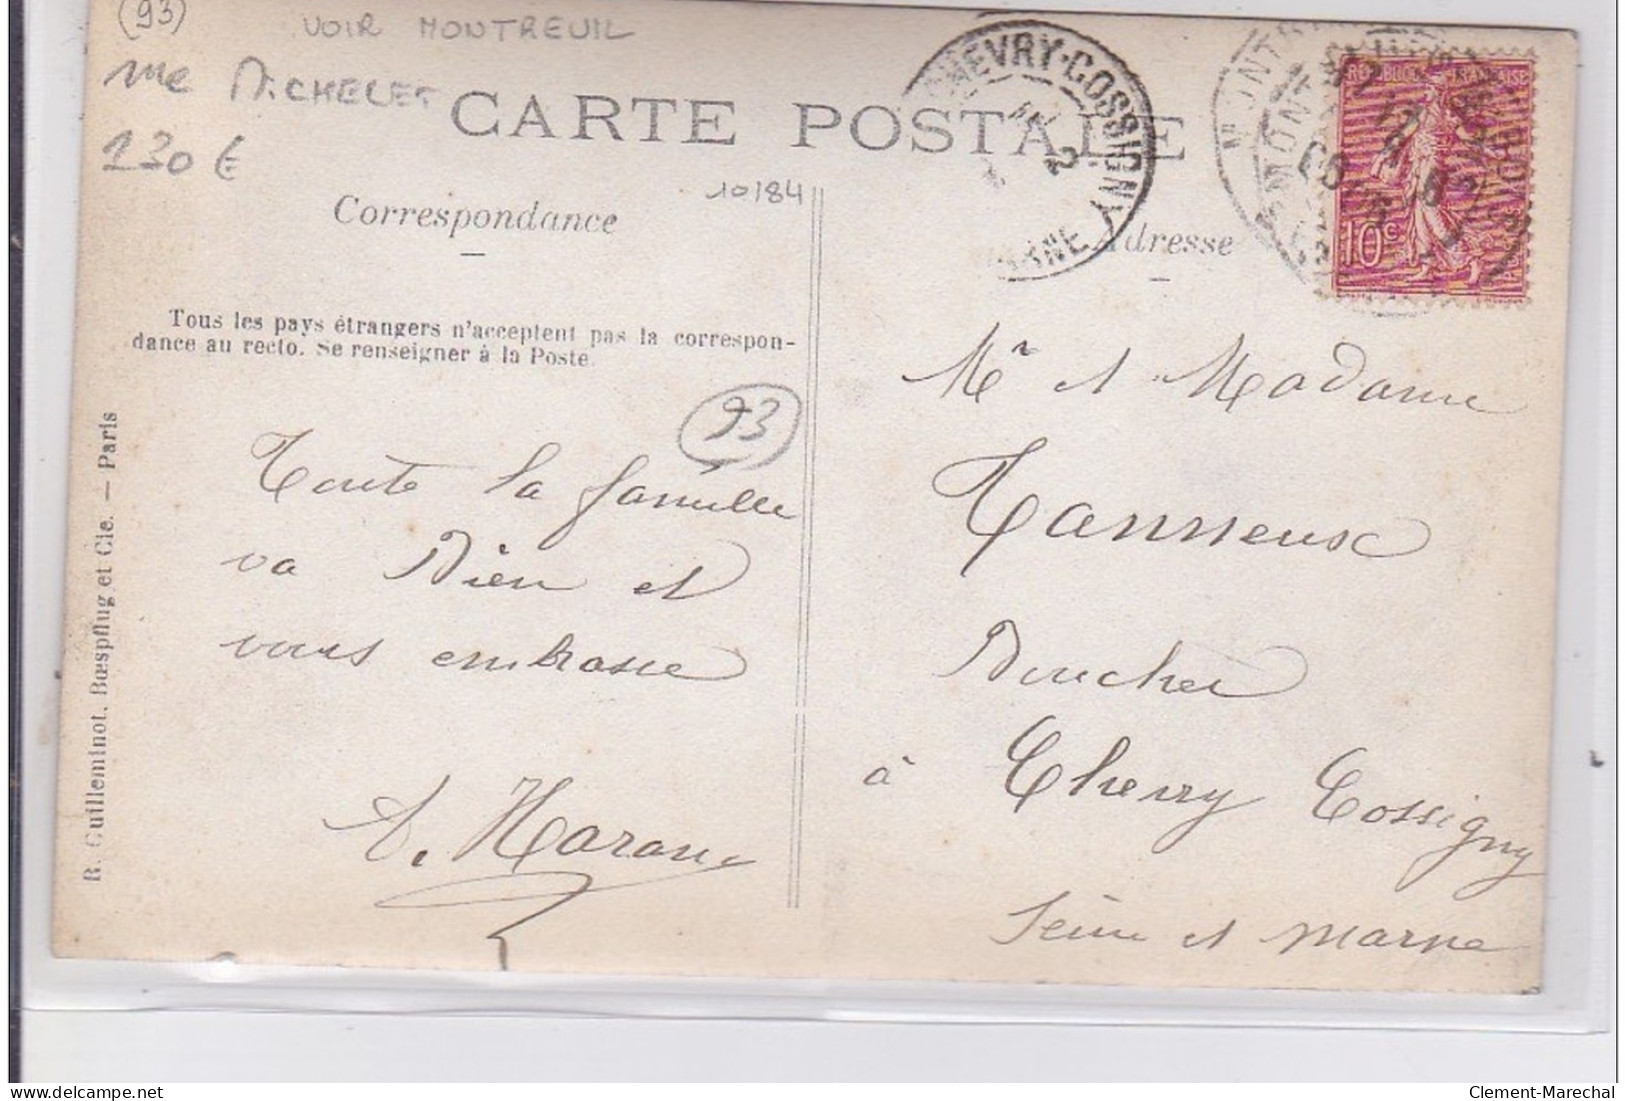 (93)
VOIR MONTREUIL
rue MICHELET
130 €
CARTE POSTALE
CHEVRY-COSSIGNY
MARNE
RÉPUBLIQUE FRANÇAISE
10c
10/84
Correspondance
Adresse
Tous les pays étrangers n'acceptent pas la correspon-
dance au recto. Se renseigner à la Poste.
93
Toute la famille
va bien et
vous embrasse
Mr et Madame
Tanneux
Boucher
à Chevry Cossigny
Seine et Marne
R. Guilleminot, Bœspflug et Cie. — Paris
Clement-Marechal